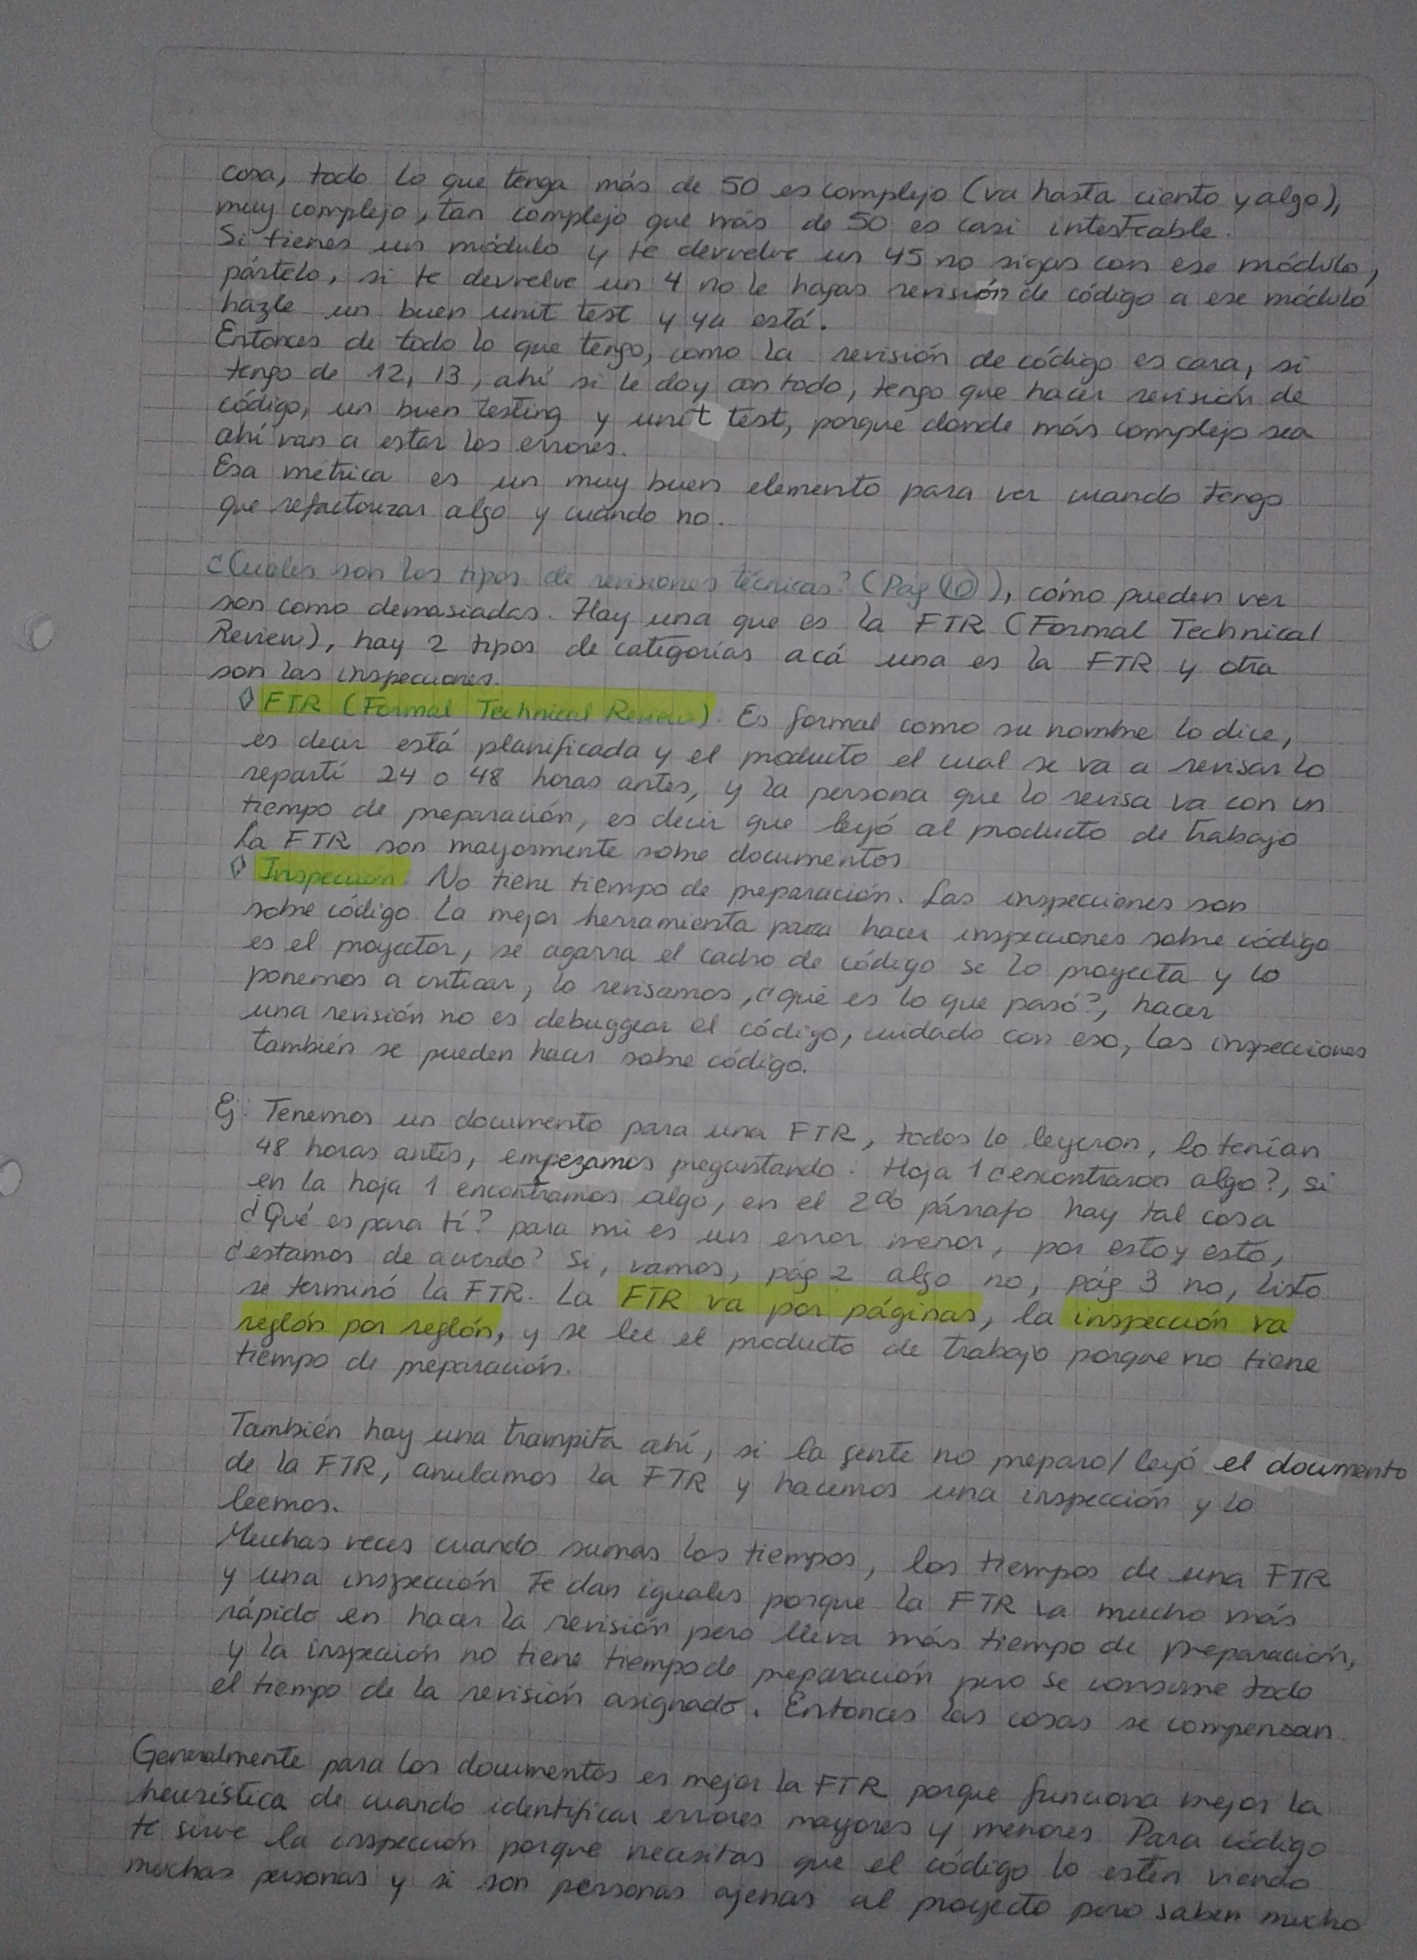 cosa, todo lo que tenga más de 50 es complejo (va hasta ciento y algo),
muy complejo, tan complejo que más de 50 es casi intesteable.
Si tienes un módulo y te devuelve un 45 no sigas con ese módulo,
pártelo, si te devuelve un 4 no le hagas revisión de código a ese módulo
hazle un buen unit test y ya está.
Entonces de todo lo que tengo, como la revisión de código es cara, si
tengo de 12, 13, ahí si le doy con todo, tengo que hacer revisión de
código, un buen testing y unit test, porque donde más complejo sea
ahí van a estar los errores.
Esa métrica es un muy buen elemento para ver cuando tengo
que refactorizar algo y cuándo no.
¿Cuáles son los tipos de revisiones técnicas? (Pág 10), cómo pueden ver
son como demasiadas. Hay una que es la FTR (Formal Technical
Review), hay 2 tipos de categorías acá una es la FTR y otra
son las inspecciones.
◊ FTR (Formal Technical Review). Es formal como su nombre lo dice,
es decir está planificada y el producto el cual se va a revisar lo
repartí 24 o 48 horas antes, y la persona que lo revisa va con un
tiempo de preparación, es decir que leyó al producto de trabajo
La FTR son mayormente sobre documentos
◊ Inspección. No tiene tiempo de preparación. Las inspecciones son
sobre código. La mejor herramienta para hacer inspecciones sobre código
es el proyector, se agarra el cacho de código se lo proyecta y lo
ponemos a criticar, lo revisamos, ¿qué es lo que pasó?, hacer
una revisión no es debuggear el código, cuidado con eso, las inspecciones
también se pueden hacer sobre código.
Ej: Tenemos un documento para una FTR, todos lo leyeron, lo tenían
48 horas antes, empezamos preguntando: Hoja 1 ¿encontraron algo?, si
en la hoja 1 encontramos algo, en el 2do párrafo hay tal cosa
¿Qué es para tí? para mi es un error menor, por esto y esto,
¿estamos de acuerdo? Si, vamos, pág 2 algo no, pág 3 no, listo
se terminó la FTR. La FTR va por páginas, la inspección va
reglón por reglón, y se lee el producto de trabajo porque no tiene
tiempo de preparación.
También hay una trampita ahí, si la gente no preparo/leyó el documento
de la FTR, anulamos la FTR y hacemos una inspección y lo
leemos.
Muchas veces cuando sumas los tiempos, los tiempos de una FTR
y una inspección te dan iguales porque la FTR va mucho más
rápido en hacer la revisión pero lleva más tiempo de preparación,
y la inspección no tiene tiempo de preparación pero se consume todo
el tiempo de la revisión asignado. Entonces las cosas se compensan.
Generalmente para los documentos es mejor la FTR porque funciona mejor la
heurística de cuando identificar errores mayores y menores. Para código
te sirve la inspección porque necesitas que el código lo estén viendo
muchas personas y si son personas ajenas al proyecto pero saben mucho